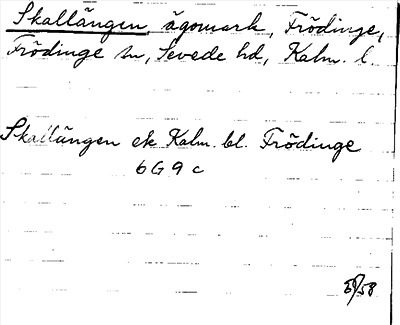 Skallängen ägomark, Frödinge,
Frödinge sn, Sevede hd, Kalm. l.
Skallängen ek Kalm. bl. Frödinge
6 G 9 c
58